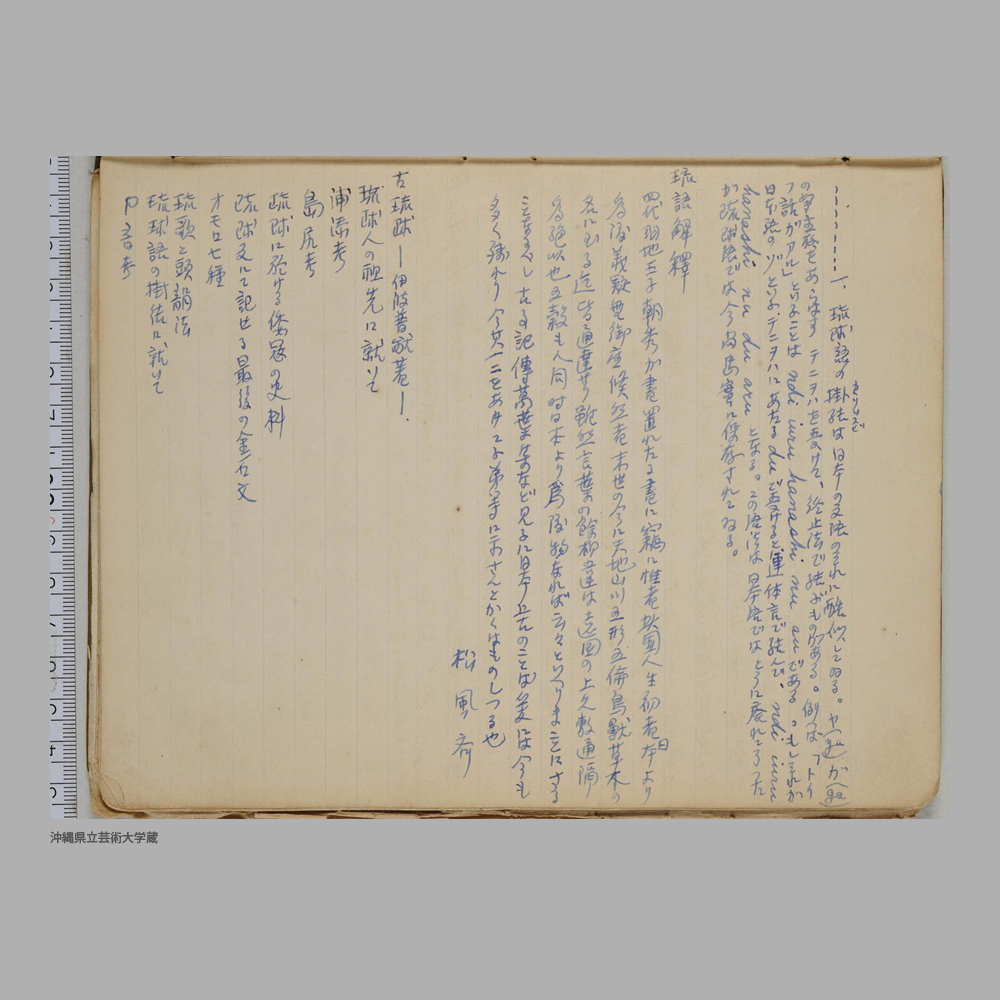 一、琉球語の掛結は日本の文法のそれに酷似してゐる。や(ya)が(ga)
かりむすび
の等主格をあらはすテニヲハを受けて、終止法で結ぶものがある。例へば「トイ
フ話ガアル」といふことは ndi iuru hanashi nu an である。もしそれが
日本語の「ゾ」といふテニヲハにあたる du で受けると連体言で結んで、ndi iuru
hanashi nu du aru となる。この語法は日本語ではとうに廃れてしまつた
が琉球語では今尚忠実に保存されてゐる。
琉語解釋
四代羽地王子朝秀が書置れたる書に竊に惟者此國人生初者日本より
為渡義疑無御座候然者末世の今に天地山川五形五倫鳥獣草木の
名に至る迄皆通達せり雖然言葉の餘相違は遠國の上久敷通融
為絶故也五穀も人同時日本より為渡物なれば云々といへりまことにさる
ことなるべし古事記傳萬葉集など見るに日本上古のことば爰には今も
多く残れり今其一二をあげて子弟等に示さんとかくはものしつる也
松風斎
古琉球 ー伊波普猷著ー.
琉球人の祖先に就いて
浦添考
島尻考
琉球に於ける倭冦の史料
琉球文にて記せる最後の金石文
オモロ七種
琉歌と頭韻法
琉球語の掛結に就いて
P音考
沖縄県立芸術大学蔵